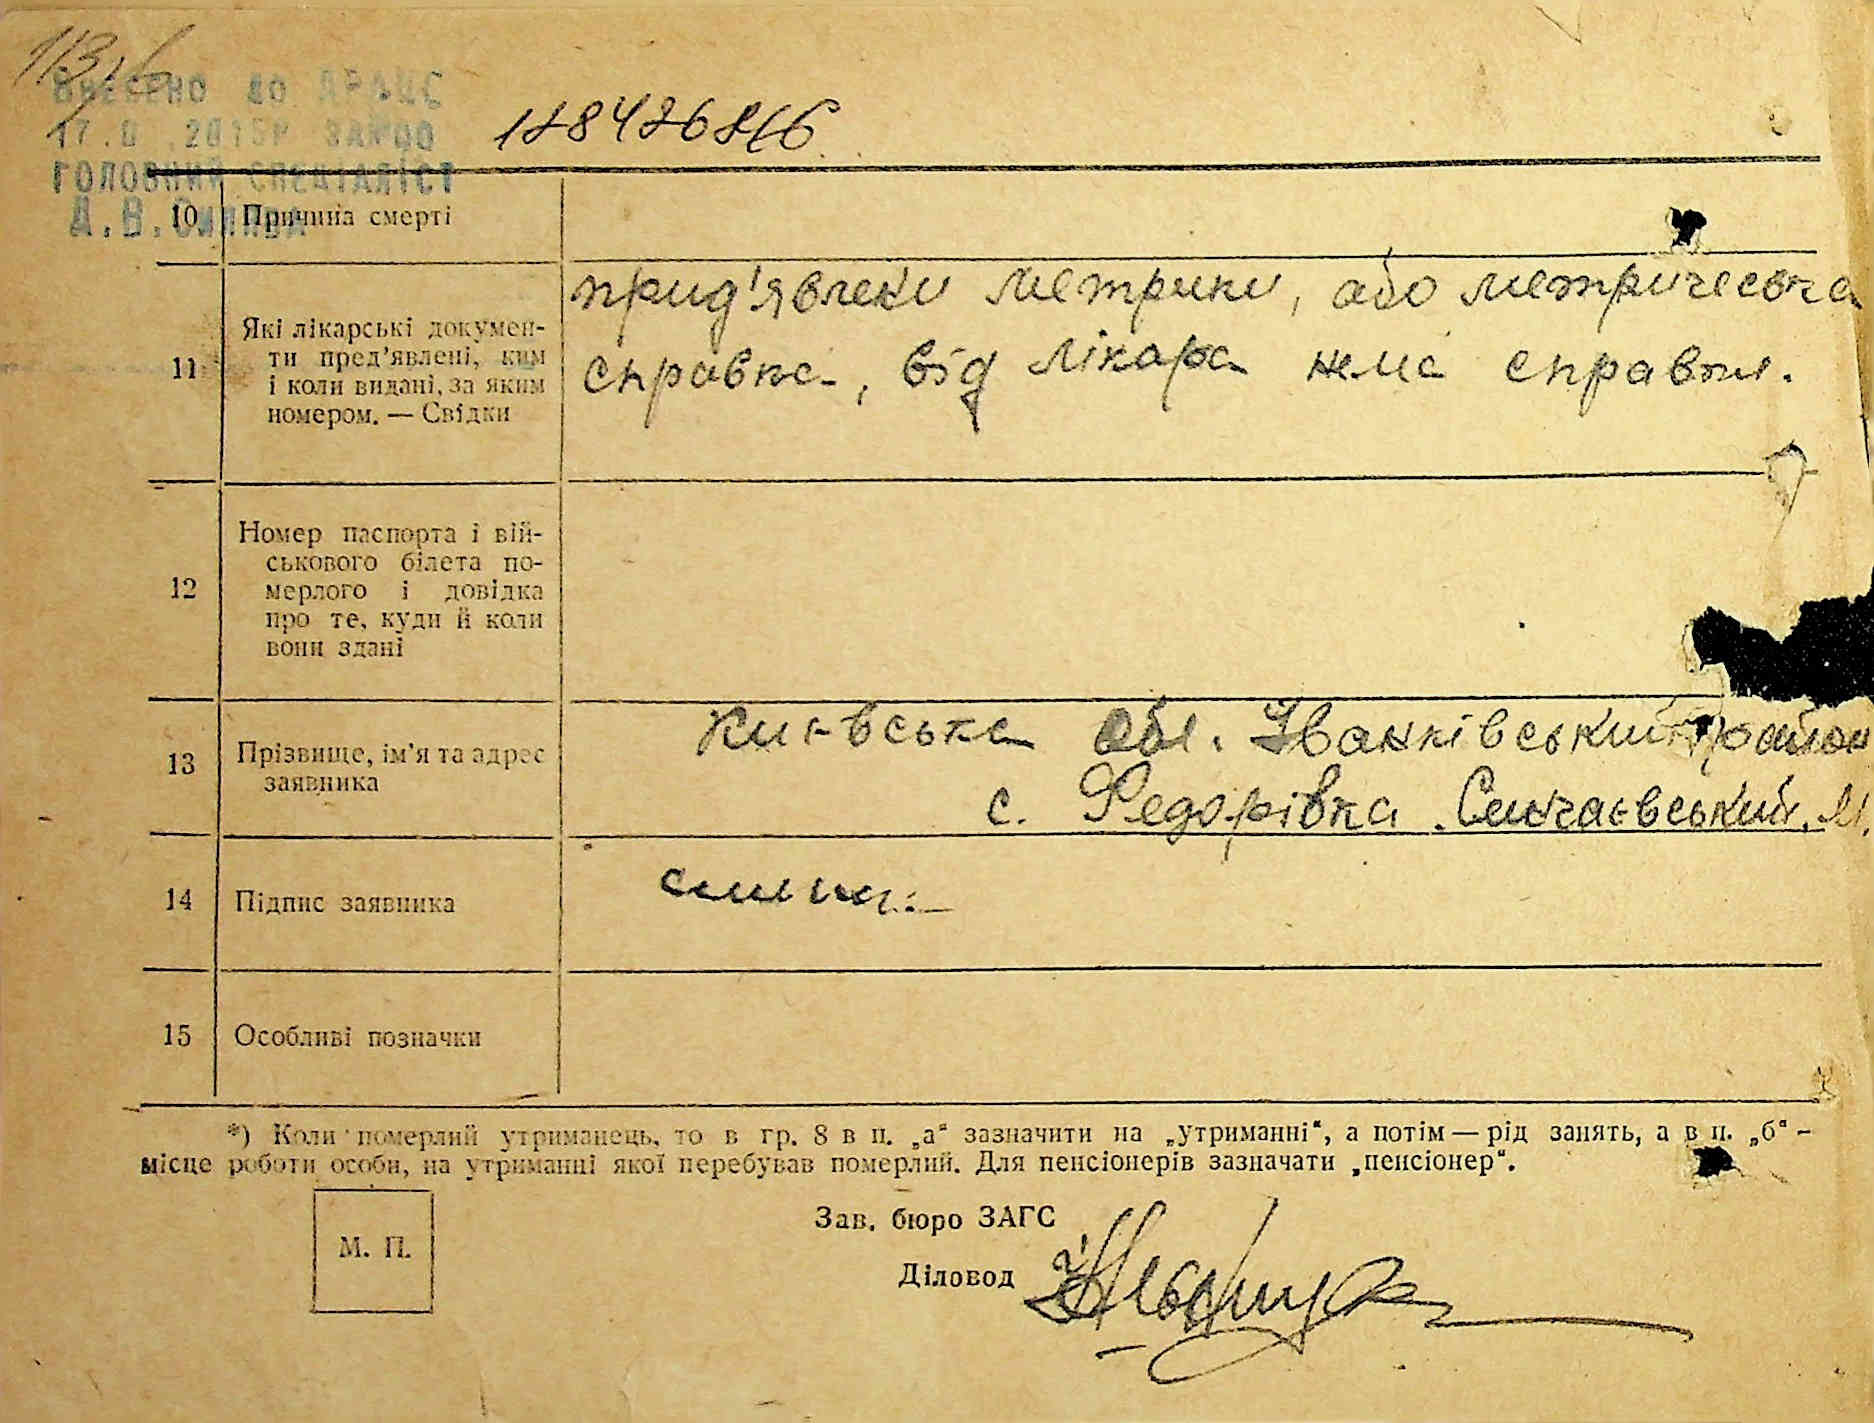 ВНЕСЕНО ДО ДРАЦС
ГОЛОВНИЙ СПЕЦІАЛІСТ
10 Причина смерті
11 Які лікарські докумен-
ти пред'явлені, ким
і коли видані, за яким
номером. — Свідки
прид'явлени метрики, або метрическа
справка, від лікара нема справки.
12 Номер паспорта і вій-
ськового білета по-
мерлого і довідка
про те, куди й коли
вони здані
13 Прізвище, ім'я та адрес
заявника
Київська обл. Іванківський район
с. Федорівка
14 Підпис заявника
15 Особливі позначки
*) Коли померлий утриманець, то в гр. 8 в п. „а" зазначити на „утриманні", а потім — рід занять, а в п. „б" -
місце роботи особи, на утриманні якої перебував померлий. Для пенсіонерів зазначати „пенсіонер".
Зав. бюро ЗАГС
М. П.
Діловод